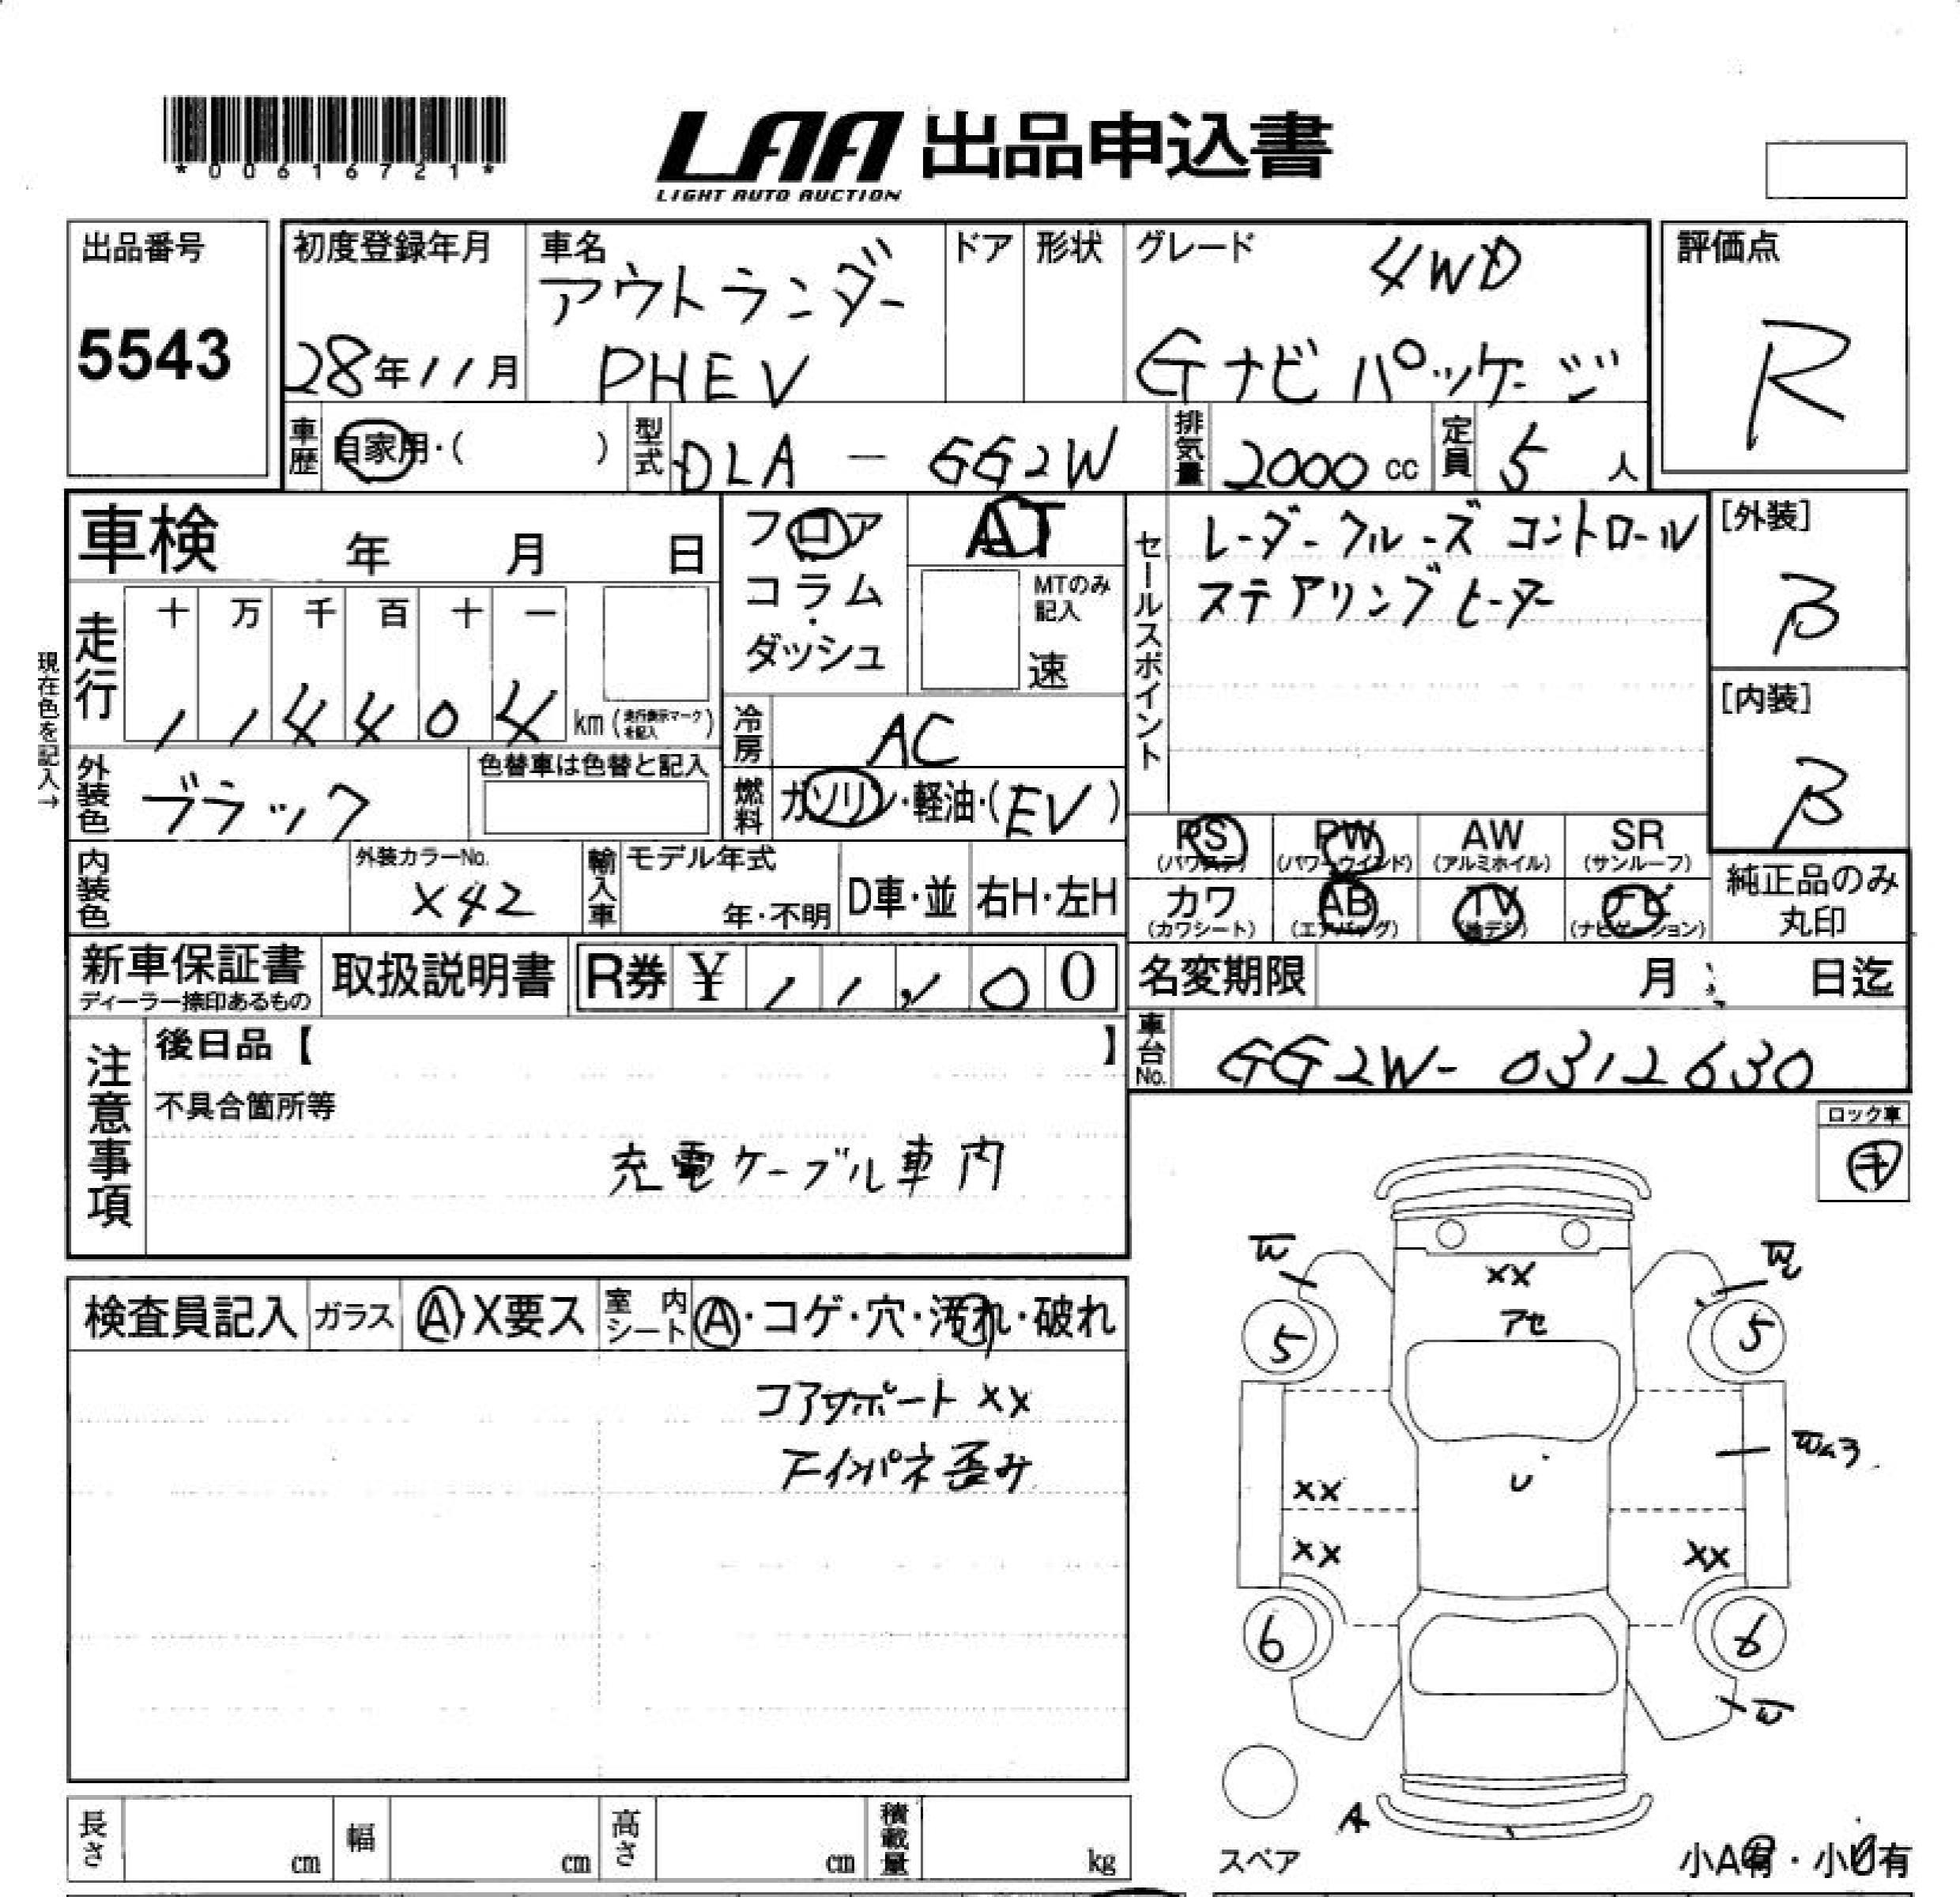 *00616721*
LAA 出品申込書
LIGHT AUTO AUCTION
出品番号
5543
初度登録年月
28年11月
車名
アウトランダー
PHEV
ドア
形状
グレード
4WD
Gナビパッケージ
評価点
R
車歴
自家用・( )
型式
DLA - GG2W
排気量
2000 cc
定員
5 人
車検 年 月 日
現在色を記入→
走行
十 万 千 百 十 一
1 1 4 4 0 4 km (走行表示マークを記入)
フロア
コラム
・
ダッシュ
AT
MTのみ記入
速
冷房
AC
燃料
ガソリン・軽油・(EV)
セールスポイント
レーダークルーズコントロール
ステアリングヒーター
[外装]
B
[内装]
B
外装色
ブラック
色替車は色替と記入
内装色
外装カラーNo.
X42
輸入車
モデル年式
年・不明
D車・並
右H・左H
PS
(パワステ)
PW
(パワーウインド)
AW
(アルミホイル)
SR
(サンルーフ)
カワ
(カワシート)
AB
(エアバッグ)
TV
(地デジ)
ナビ
(ナビゲーション)
純正品のみ
丸印
新車保証書
ディーラー捺印あるもの
取扱説明書
R券 ¥ 1 1, 1 0 0
名変期限 月 日迄
車台No.
GG2W-0312630
注意事項
後日品【 】
不具合箇所等
充電ケーブル車内
ロック車
キ
検査員記入
ガラス
A・X要ス
室内シート
A・コゲ・穴・汚れ・破れ
コアサポートXX
インパネ歪み
W
XX
アセ
5
5
Wa3
XX
U
XX
XX
6
6
W
A
スペア
小A有・小U有
長さ cm
幅 cm
高さ cm
積載量 kg